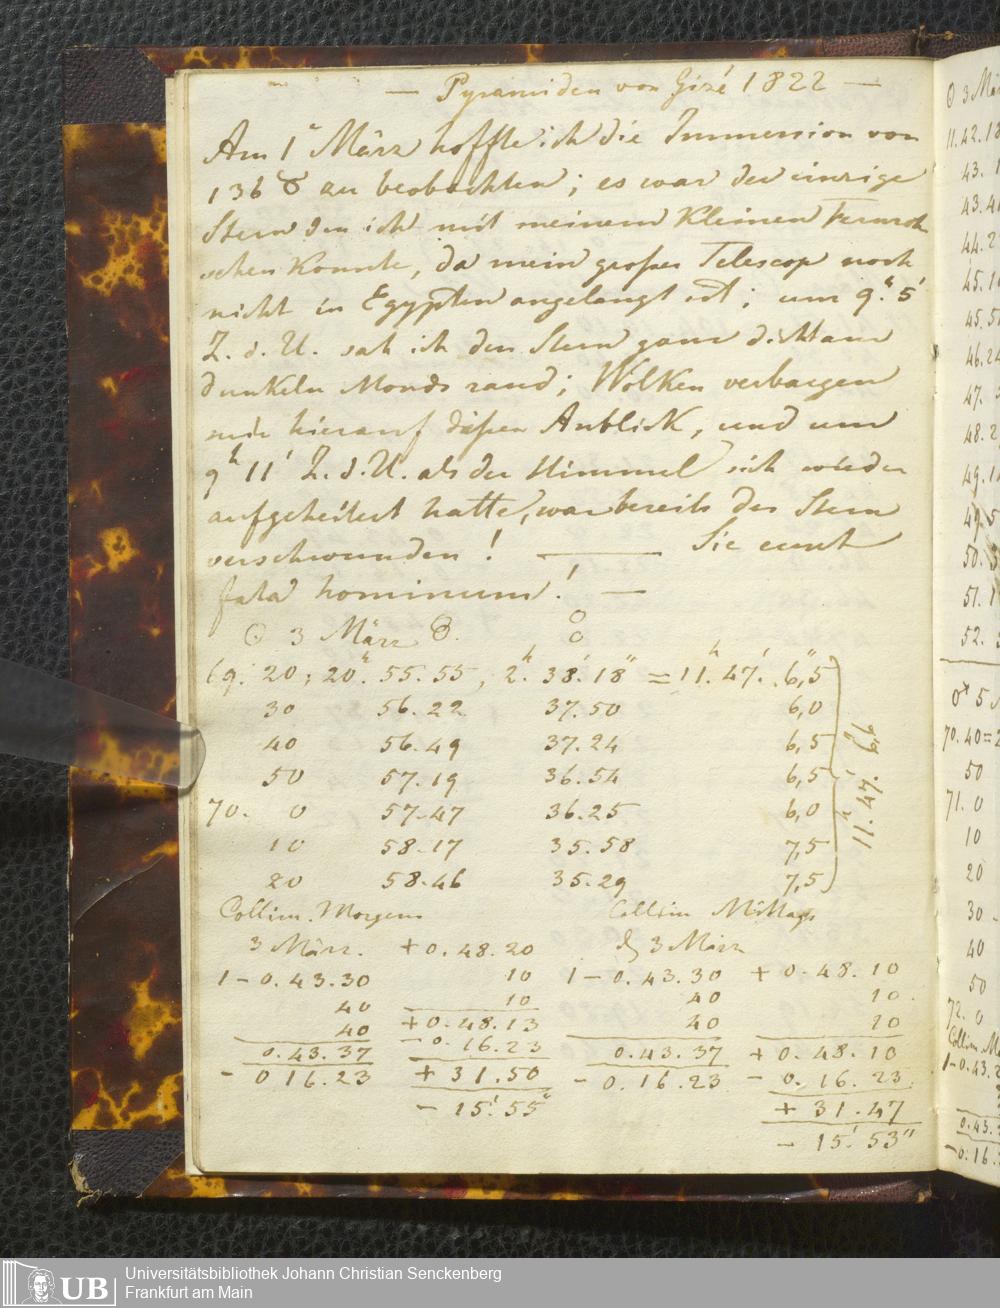 — Pyramiden von Gizé 1822 —
Am 1 März hoffte ich die Immersion von
136 ♉ zu beobachten; es war der einzige
Stern den ich mit meinem Kleinen Fernroh
sehen Konnte, da mein großes Telescop noch
nicht in Egypten angelangt ist; um 9h 5'
Z. d. U. sah ich den Stern ganz dicht am
dunkeln Monds rand; Wolken verbargen
mir hierauf dießen Anblick, und um
9h 11' Z. d. U. als der Himmel sich wieder
aufgeheitert hatte, war bereits der Stern
verschwunden! — Sic sunt
fata hominum! —
☉ 3 März
69. 20; 20h. 55. 55; 2h. 38.' 18" = 11h. 47.' 6",5
30 56. 22 37. 50 6,0
40 56. 49 37. 24 6,5
50 57. 19 36. 54 6,5
70. 0 57. 47 36. 25 6,0
10 58. 17 35. 58 7,5
20 58. 46 35. 29 7,5
11h. 47.' 6,6
Collim. Morgens
3 März. + 0. 48. 20
1 — 0. 43. 30 10
40 10
40 + 0. 48. 13
0. 43. 37 — 0. 16. 23
— 0 16. 23 + 31. 50
— 15.' 55"
Collim Mittags
d 3 März
1 — 0. 43. 30 + 0. 48. 10
40 10.
40 10
0. 43. 37 + 0. 48. 10
— 0. 16. 23 — 0. 16. 23
+ 31. 47
— 15.' 53"
☉ 3 Mä
11. 42. 1
43. 1
43. 4
44. 2
45. 1
45. 5
46. 24
47.
48. 2
49. 1
49. 5
50.
51. 1
52.
♂ 5
70. 40 =
50
71. 0
10
20
30
40
50
72. 0
Collim. M
1 — 0. 43. 2
0. 43.
— 0. 16.
UB
Universitätsbibliothek Johann Christian Senckenberg
Frankfurt am Main